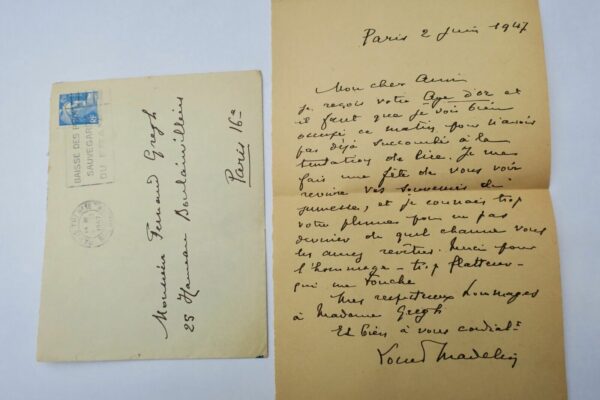 BAISSE DES P
SAUVEGARDE
DU FRANC
Monsieur Fernand Gregh
25 Hameau Boulainvilliers
Paris 16e
Paris 2 Juin 1947
Mon cher Ami
Je reçois votre Age d'or et
il faut que je sois bien
occupé ce matin, pour n'avoir
pas déjà succombé à la
tentation de lire. Je me
fais une fête de vous voir
revivre vos souvenirs de
jeunesse, et je connais trop
votre plume pour ne pas
deviner de quel charme vous
les aurez revêtus. Merci pour
l'hommage – trop flatteur –
qui me touche
Mes respectueux hommages
à Madame Gregh
Et bien à vous cordialt
Louis Madelin